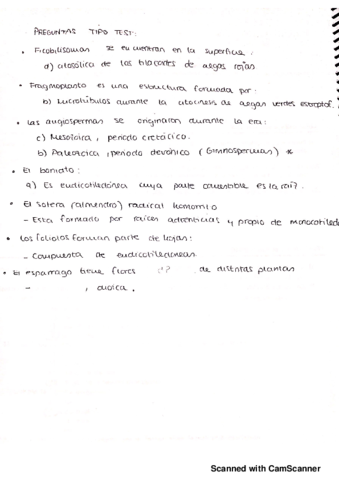 PREGUNTAS TIPO TEST:
• Ficobilisomas se encuentran en la superficie:
d) citosólica de los tilacoides de algas rojas
• Fragmoplasto es una estructura formada por:
b) Microtúbulos durante la citocinesis de algas verdes estreptof.
• Las angiospermas se originaron durante la era:
c) Mesozoica, periodo cretácico.
b) Paleozoica, periodo devónico (Gimnospermas) *
• El boniato:
a) Es eudicotiledónea cuya parte comestible es la raíz.
• El sistema radical homorrizo
- Esta formado por raíces adventicias y propio de monocotiled
• Los foliolos forman parte de hojas:
- Compuesta de eudicotiledoneas
• El esparrago tiene flores ♂? de distintas plantas
- , dioica,
Scanned with CamScanner